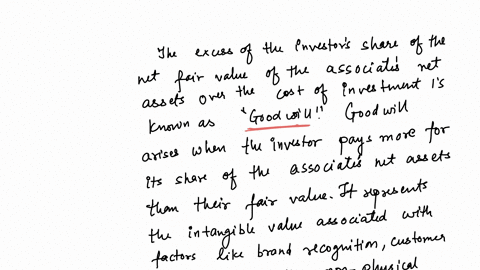 The excess of the investor's share of the
net fair value of the associate's net
assets over the cost of investment is
known as "Goodwill". Goodwill
arises when the investor pays more for
its share of the associate's net assets
than their fair value. It represents
the intangible value associated with
factors like brand recognition, customer
non-physical